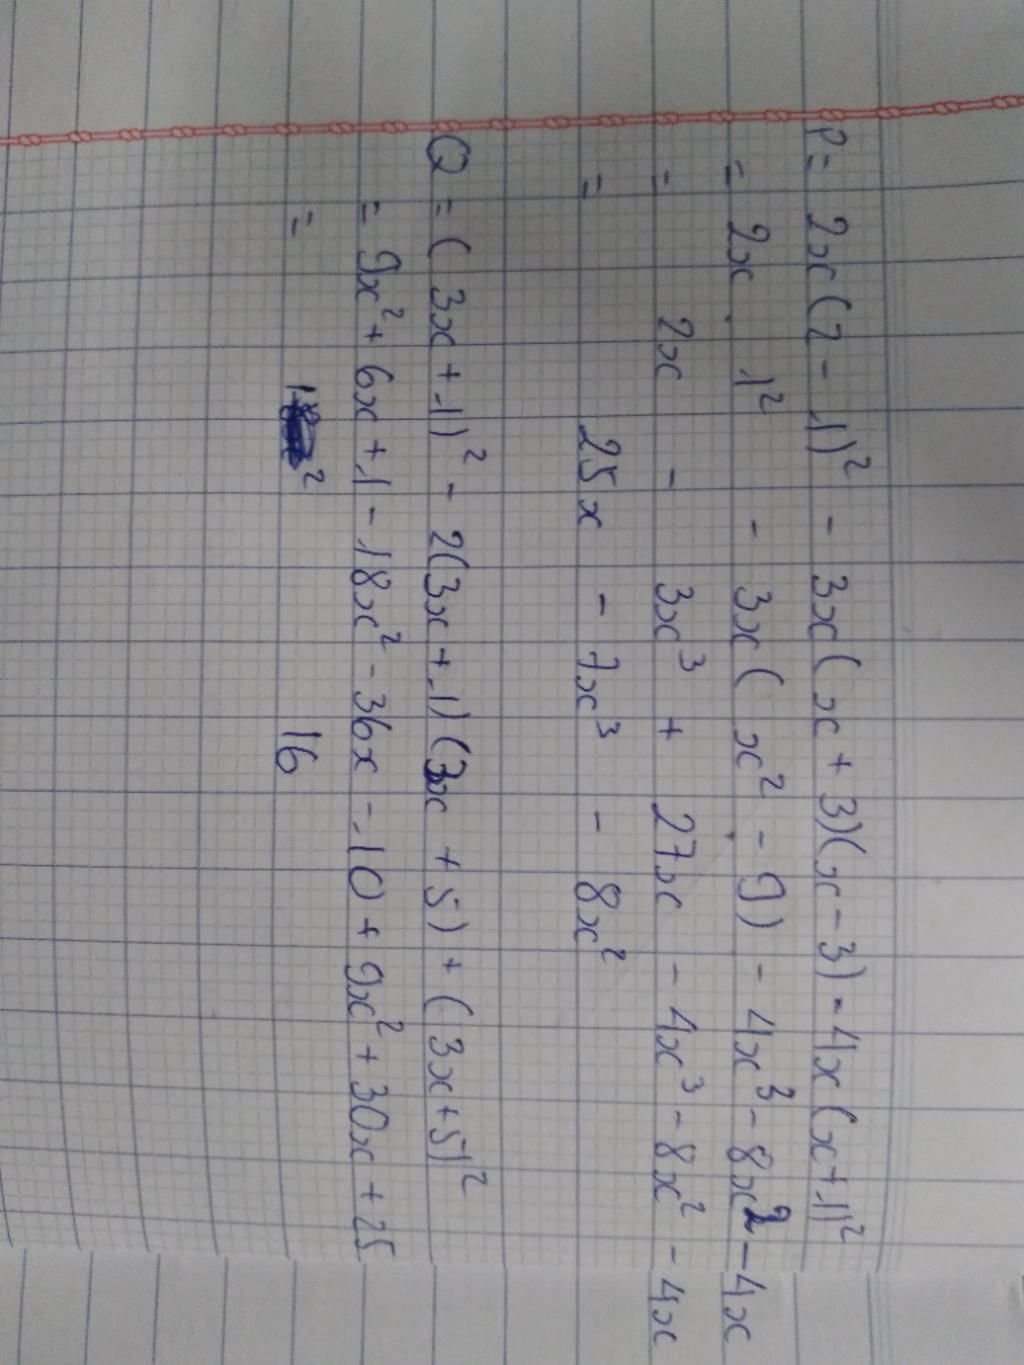 P = 2x(2 - 1)² - 3x(x + 3)(x - 3) - 4x(x + 1)²
= 2x . 1² - 3x(x² - 9) - 4x³ - 8x² - 4x
= 2x - 3x³ + 27x - 4x³ - 8x² - 4x
= 25x - 7x³ - 8x²
Q = (3x + 1)² - 2(3x + 1)(3x + 5) + (3x + 5)²
= 9x² + 6x + 1 - 18x² - 36x - 10 + 9x² + 30x + 25
= 16